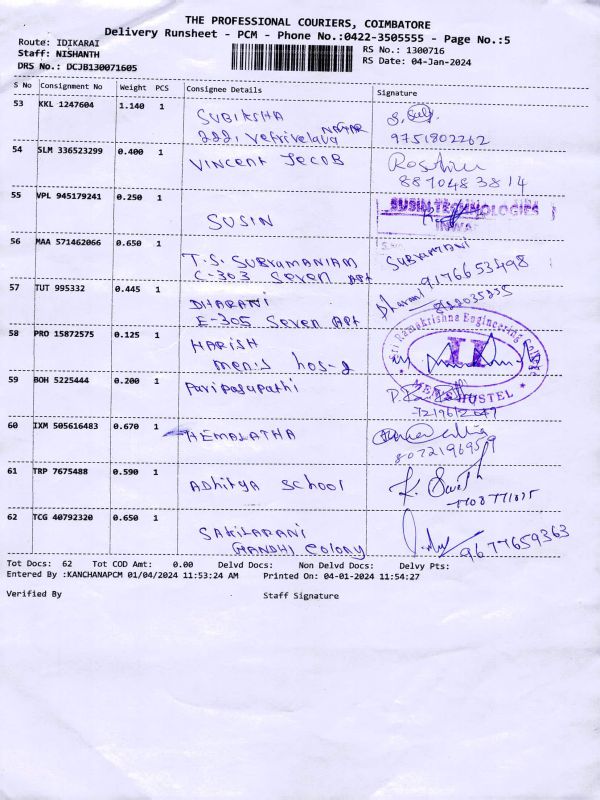 THE PROFESSIONAL COURIERS, COIMBATORE
Delivery Runsheet - PCM - Phone No.:0422-3505555 - Page No.:5
Route: IDIKARAI
Staff: NISHANTH
DRS No.: DCJB130071605
RS No.: 1300716
RS Date: 04-Jan-2024
S No Consignment No Weight PCS Consignee Details Signature
53 KKL 1247604 1.140 1 SUBIKSHA
222, Vetrivelava NAGAR
9751802262
54 SLM 336523299 0.400 1 VINCENT JECOB
8870483814
55 VPL 945179241 0.250 1 SUSIN
SUSIN TECHNOLOGIES
56 MAA 571462066 0.650 1 T.S. SUBRAMANIAM
C-303 Seven APt
SUBRAMANI
9176653498
57 TUT 995332 0.445 1 DHARANI
E-305 Seven APt
Dharani
58 PRO 15872575 0.125 1 HARISH
men's hos-2
Sri Ramakrishna Engineering College
II
MEN'S HOSTEL
59 BOH 5225444 0.200 1 Paripasapathi
60 IXM 505616483 0.670 1 HEMALATHA
8072196959
61 TRP 7675488 0.590 1 Adhitya School
62 TCG 40792320 0.650 1 SAKILARANI
GANDHI Colony
9677659363
Tot Docs: 62 Tot COD Amt: 0.00 Delvd Docs: Non Delvd Docs: Delvy Pts:
Entered By :KANCHANAPCM 01/04/2024 11:53:24 AM Printed On: 04-01-2024 11:54:27
Verified By Staff Signature